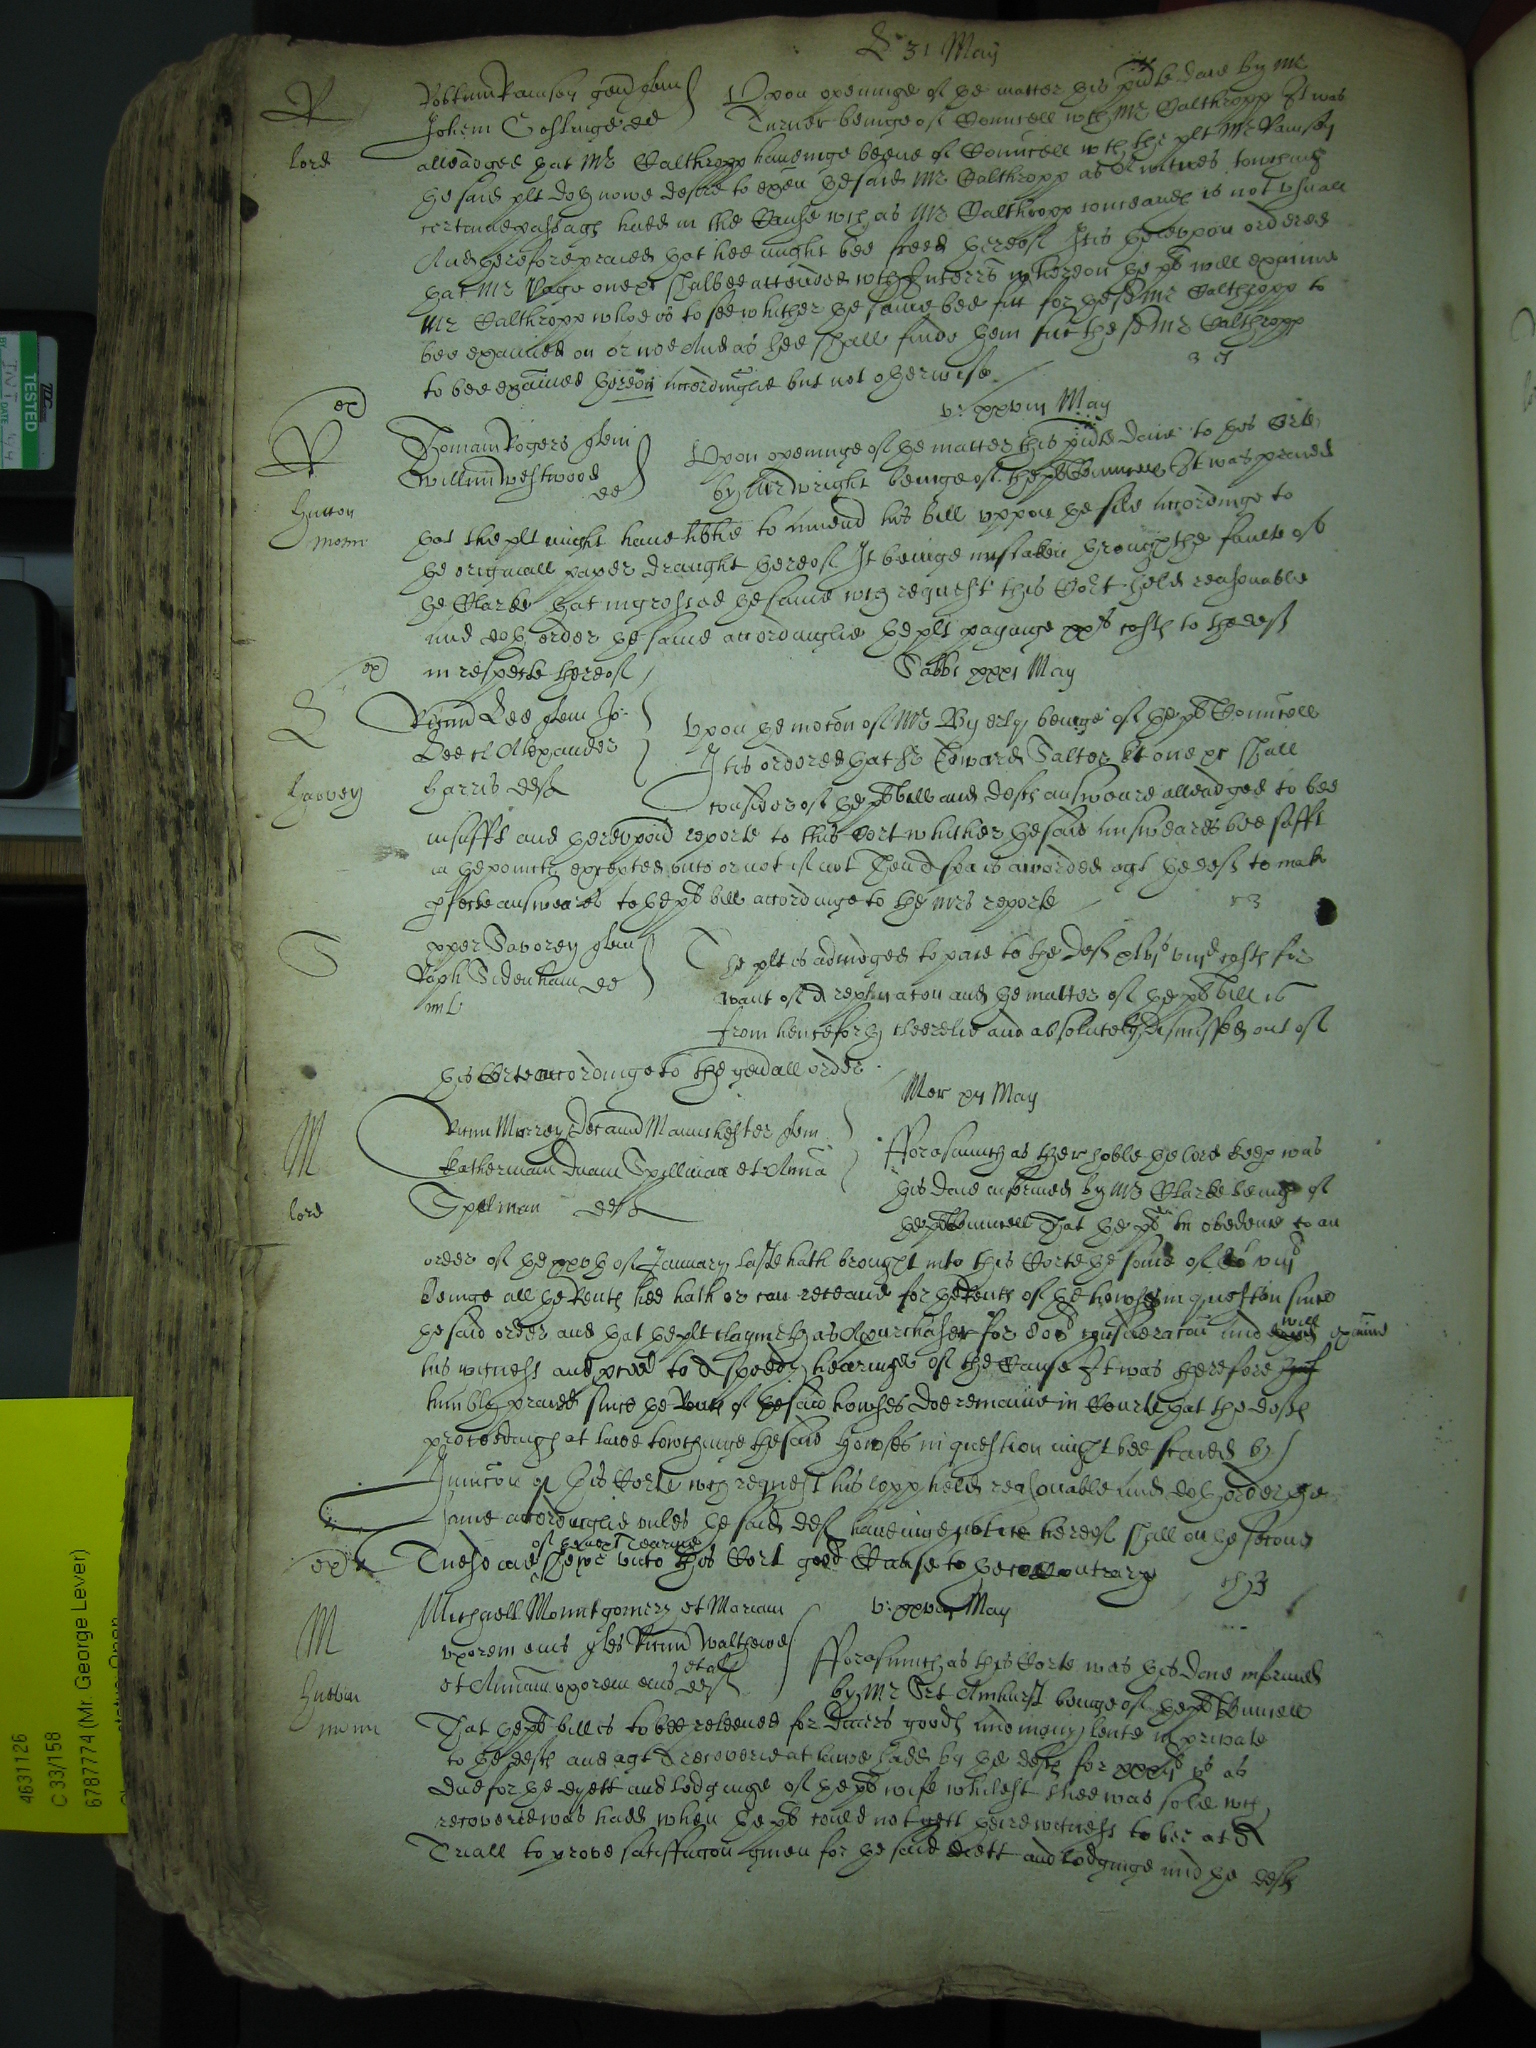 S 31 May
R
lord
Robtum Ramsey gen quer
Johem Goslinge def
Upon openinge of the matter this pnte daie by Mr
Turner beinge of Councell wth Mr Calthropp It was
alleadged that Mr Calthropp haveinge beene of Councell wth the plt Mr Ramsey
the said plt doth nowe desire to exen the said Mr Calthropp as A witnes touching
certaine passages hadd in the Cause wch as Mr Calthropp conceaveth is not usuall
And therefore praied that hee might bee freed thereof It is thereupon ordered
that Mr Page one &c shalbee attended wth Interrs whereon the pt will examine
Mr Calthropp whoe is to see whither the same bee fitt for the sd Mr Calthropp to
bee examined on or noe And as hee shall finde them fitt the sd Mr Calthropp
to bee examined thereon accordinglie but not otherwise
v: xxviij May
ex
R
Hutton
Thomam Rogers quer
Willum Westwood
def
Upon openinge of the matter this pnte daie to this Corte
by Mr Wright beinge of the pts Councell It was praied
that the plt might have libtie to amend his bill uppon the file accordinge to
the originall paper draught thereof It beinge mistaken through the faulte of
the Clarke that ingrossed the same wch request this Cort held reasonable
and doth order the same accordinglie the plt payinge xxs costs to the deft
in respecte thereof
Sabbi xxxi May
ex
L
Harvey
Ricum Lee quer Jo:
Lee et Alexander
Harris deft
Upon the mocon of Mr Byerly beinge of the pts Councell
It is ordered that Sr Edward Salter kt one &c shall
consider of the pts bill and defts answeare alleadged to bee
insufft and thereupon reporte to this Cort whither the said answeares bee sufft
in the points excepted unto or not if not Then A spa is awarded agt the deft to make
pfecte answeares to the pts bill accordinge to the Mrs reporte
S
Xpper Savorey quer
Raph Sidenham def
mil
The plt is adiudged to paie to the deft xlvjs viijd costs for
want of A replicacon and the matter of the pts bill is
from henceforth cleerelie and absolutely dismissed out of
this Corte accordinge to the genall order
Mer xxj May
M
lord
Ricum Murrey Decanum Manchester quer
Katherinam Dnam Spillman et Annā
Spelman defts
Fforasmuch as the right hoble the lord keep was
this daie informed by Mr Clarke beinge of
the pts Councell That the pt in obedience to an
order of the xxvth of January laste hath brought into this Corte the some of
beinge all the Rents hee hath or can receave for the Rents of the howses in question since
the said order and that the plt claymeth as A purchaser for consideracon and will exaime
his witness and pceed to A speedy hearinge of the Cause It was therefore
humbly praied since the Rents of the said howses doe remaine in Courte that the defts
proceedings at lawe towchinge the said howses in question might bee staied by
Iniuncon of this Corte wch request his lopp held reasonable and doth order the
same accordinglie unles the said deft haveinge notice hereof shall on the second
of the next Tearme
Tuesdaie shewe unto this Cort good Cause to the contrary
M
Michaell Mountgomery et Mariam
uxorem eius quer Ricum Walthewe
et Annam uxorem eius et al deft
v: xxviij May
Fforasmuch as this Corte was this daie informed
by Mr Srt Amhurst beinge of the pts Councell
That the pts bill is to bee releeved for divers goods and mony lente in private
to the defts and agt A recoverie at lawe hadd by the defts for xxxli vs as
due for the dyett and lodginge of the pts wife whilest shee was sole wch
recoverie was hadd when the pt could not gett theire witness to bee at A
Triall to prove satisfaccon given for the said diett and lodginge and the defts
TESTED
4631126
C 33/158
6787774 (Mr. George Lever)